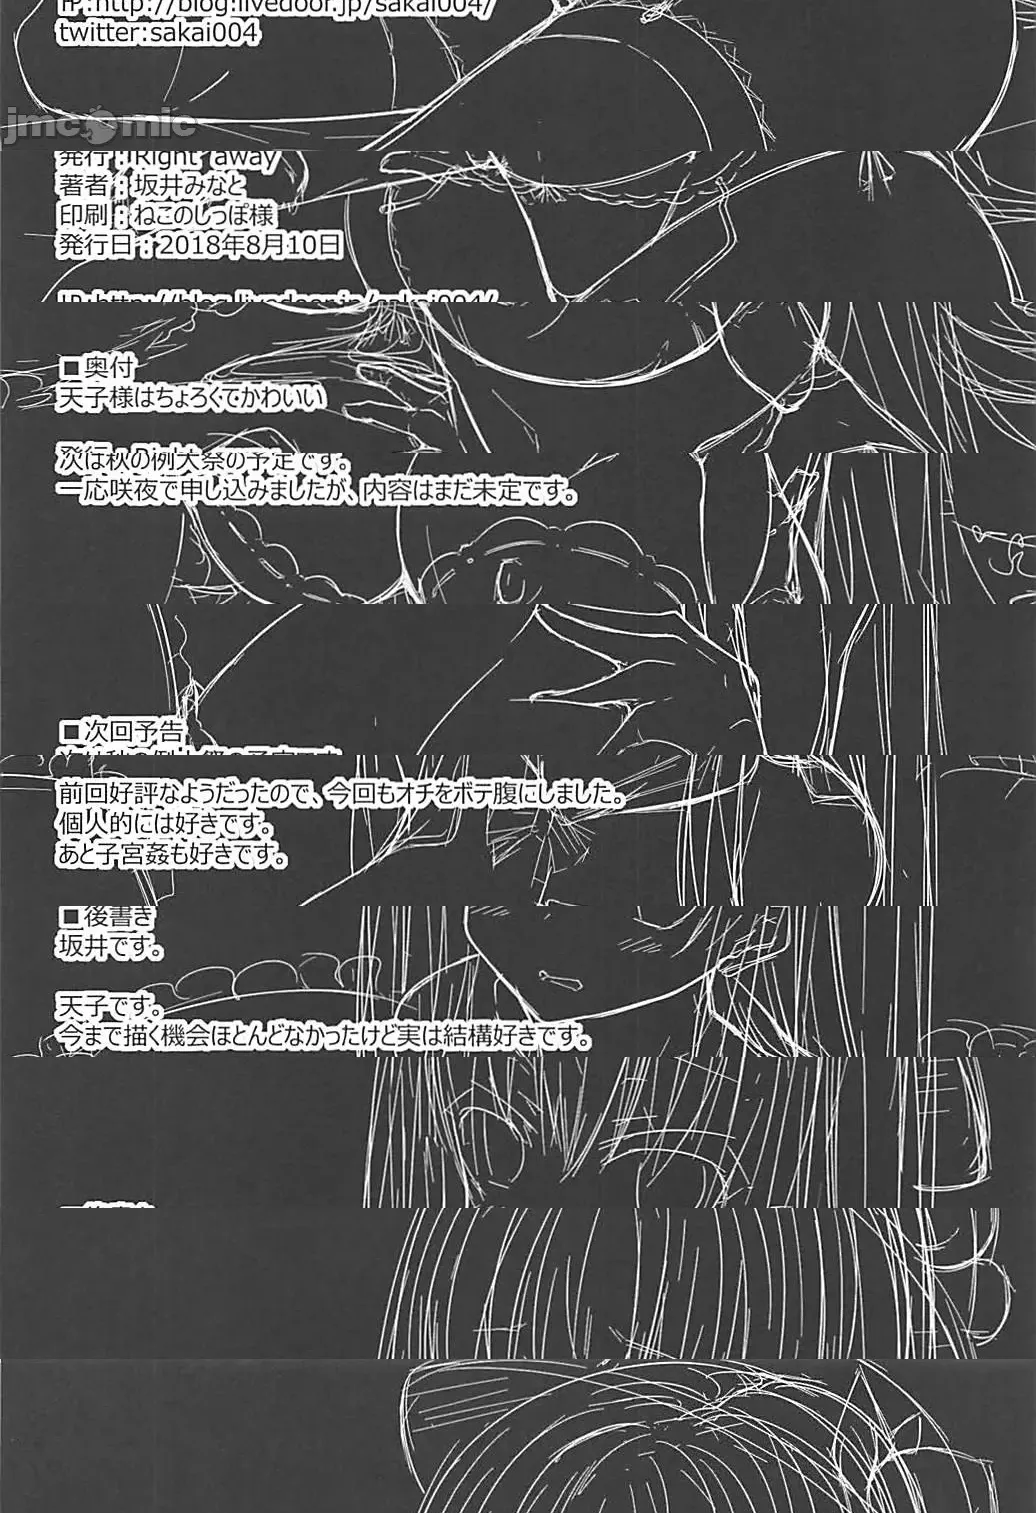 IP:http://blog.livedoor.jp/sakai004/
twitter:sakai004
jmcomic
発行：Right away
著者：坂井みなと
印刷：ねこのしっぽ様
発行日：2018年8月10日
□奥付
天子様はちょろくてかわいい
次は秋の例大祭の予定です。
一応咲夜で申し込みましたが、内容はまだ未定です。
□次回予告
前回好評なようだったので、今回もオチをボテ腹にしました。
個人的には好きです。
あと子宮姦も好きです。
□後書き
坂井です。
天子です。
今まで描く機会ほとんどなかったけど実は結構好きです。